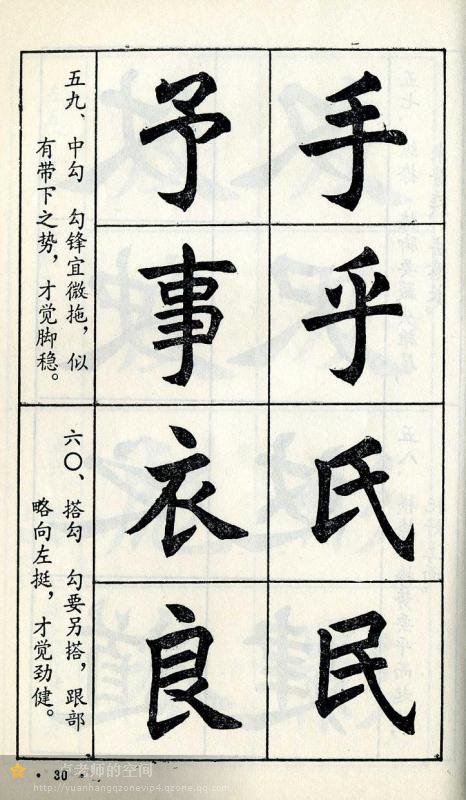 手乎氏民
予事衣良
五九、中勾 勾锋宜微拖，似
有带下之势，才觉脚稳。
六〇、搭勾 勾要另搭，跟部
略向左挺，才觉劲健。
· 30 ·
卢老师的空间
http://yuanhangqzonevip4.qzone.qq.com